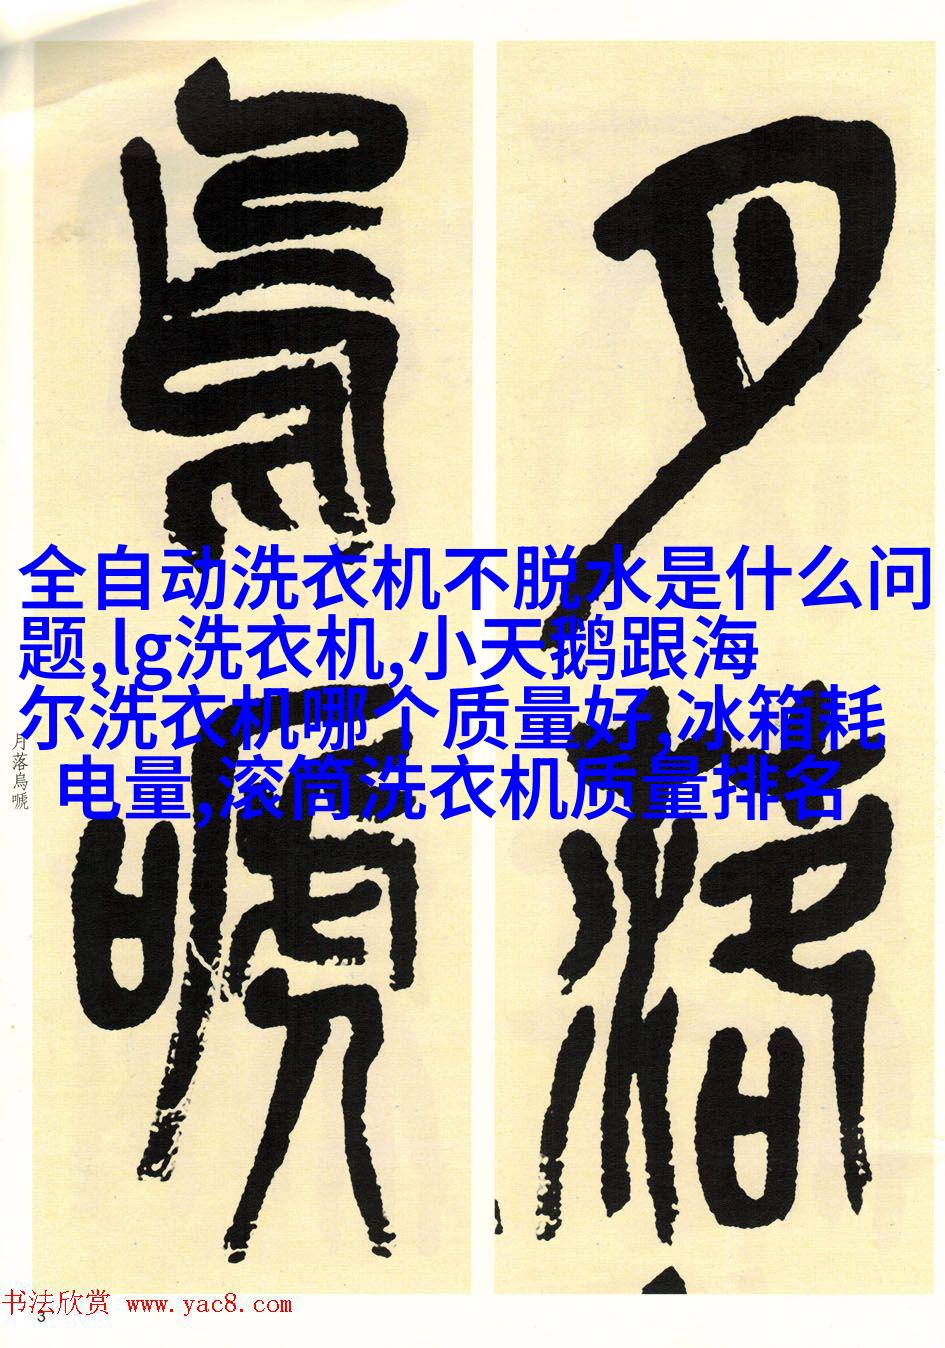 月落
烏嗁
全自动洗衣机不脱水是什么问
题,lg洗衣机,小天鹅跟海
尔洗衣机哪个质量好,冰箱耗
电量,滚筒洗衣机质量排名
月落烏嗁
书法欣赏 www.yac8.com
3